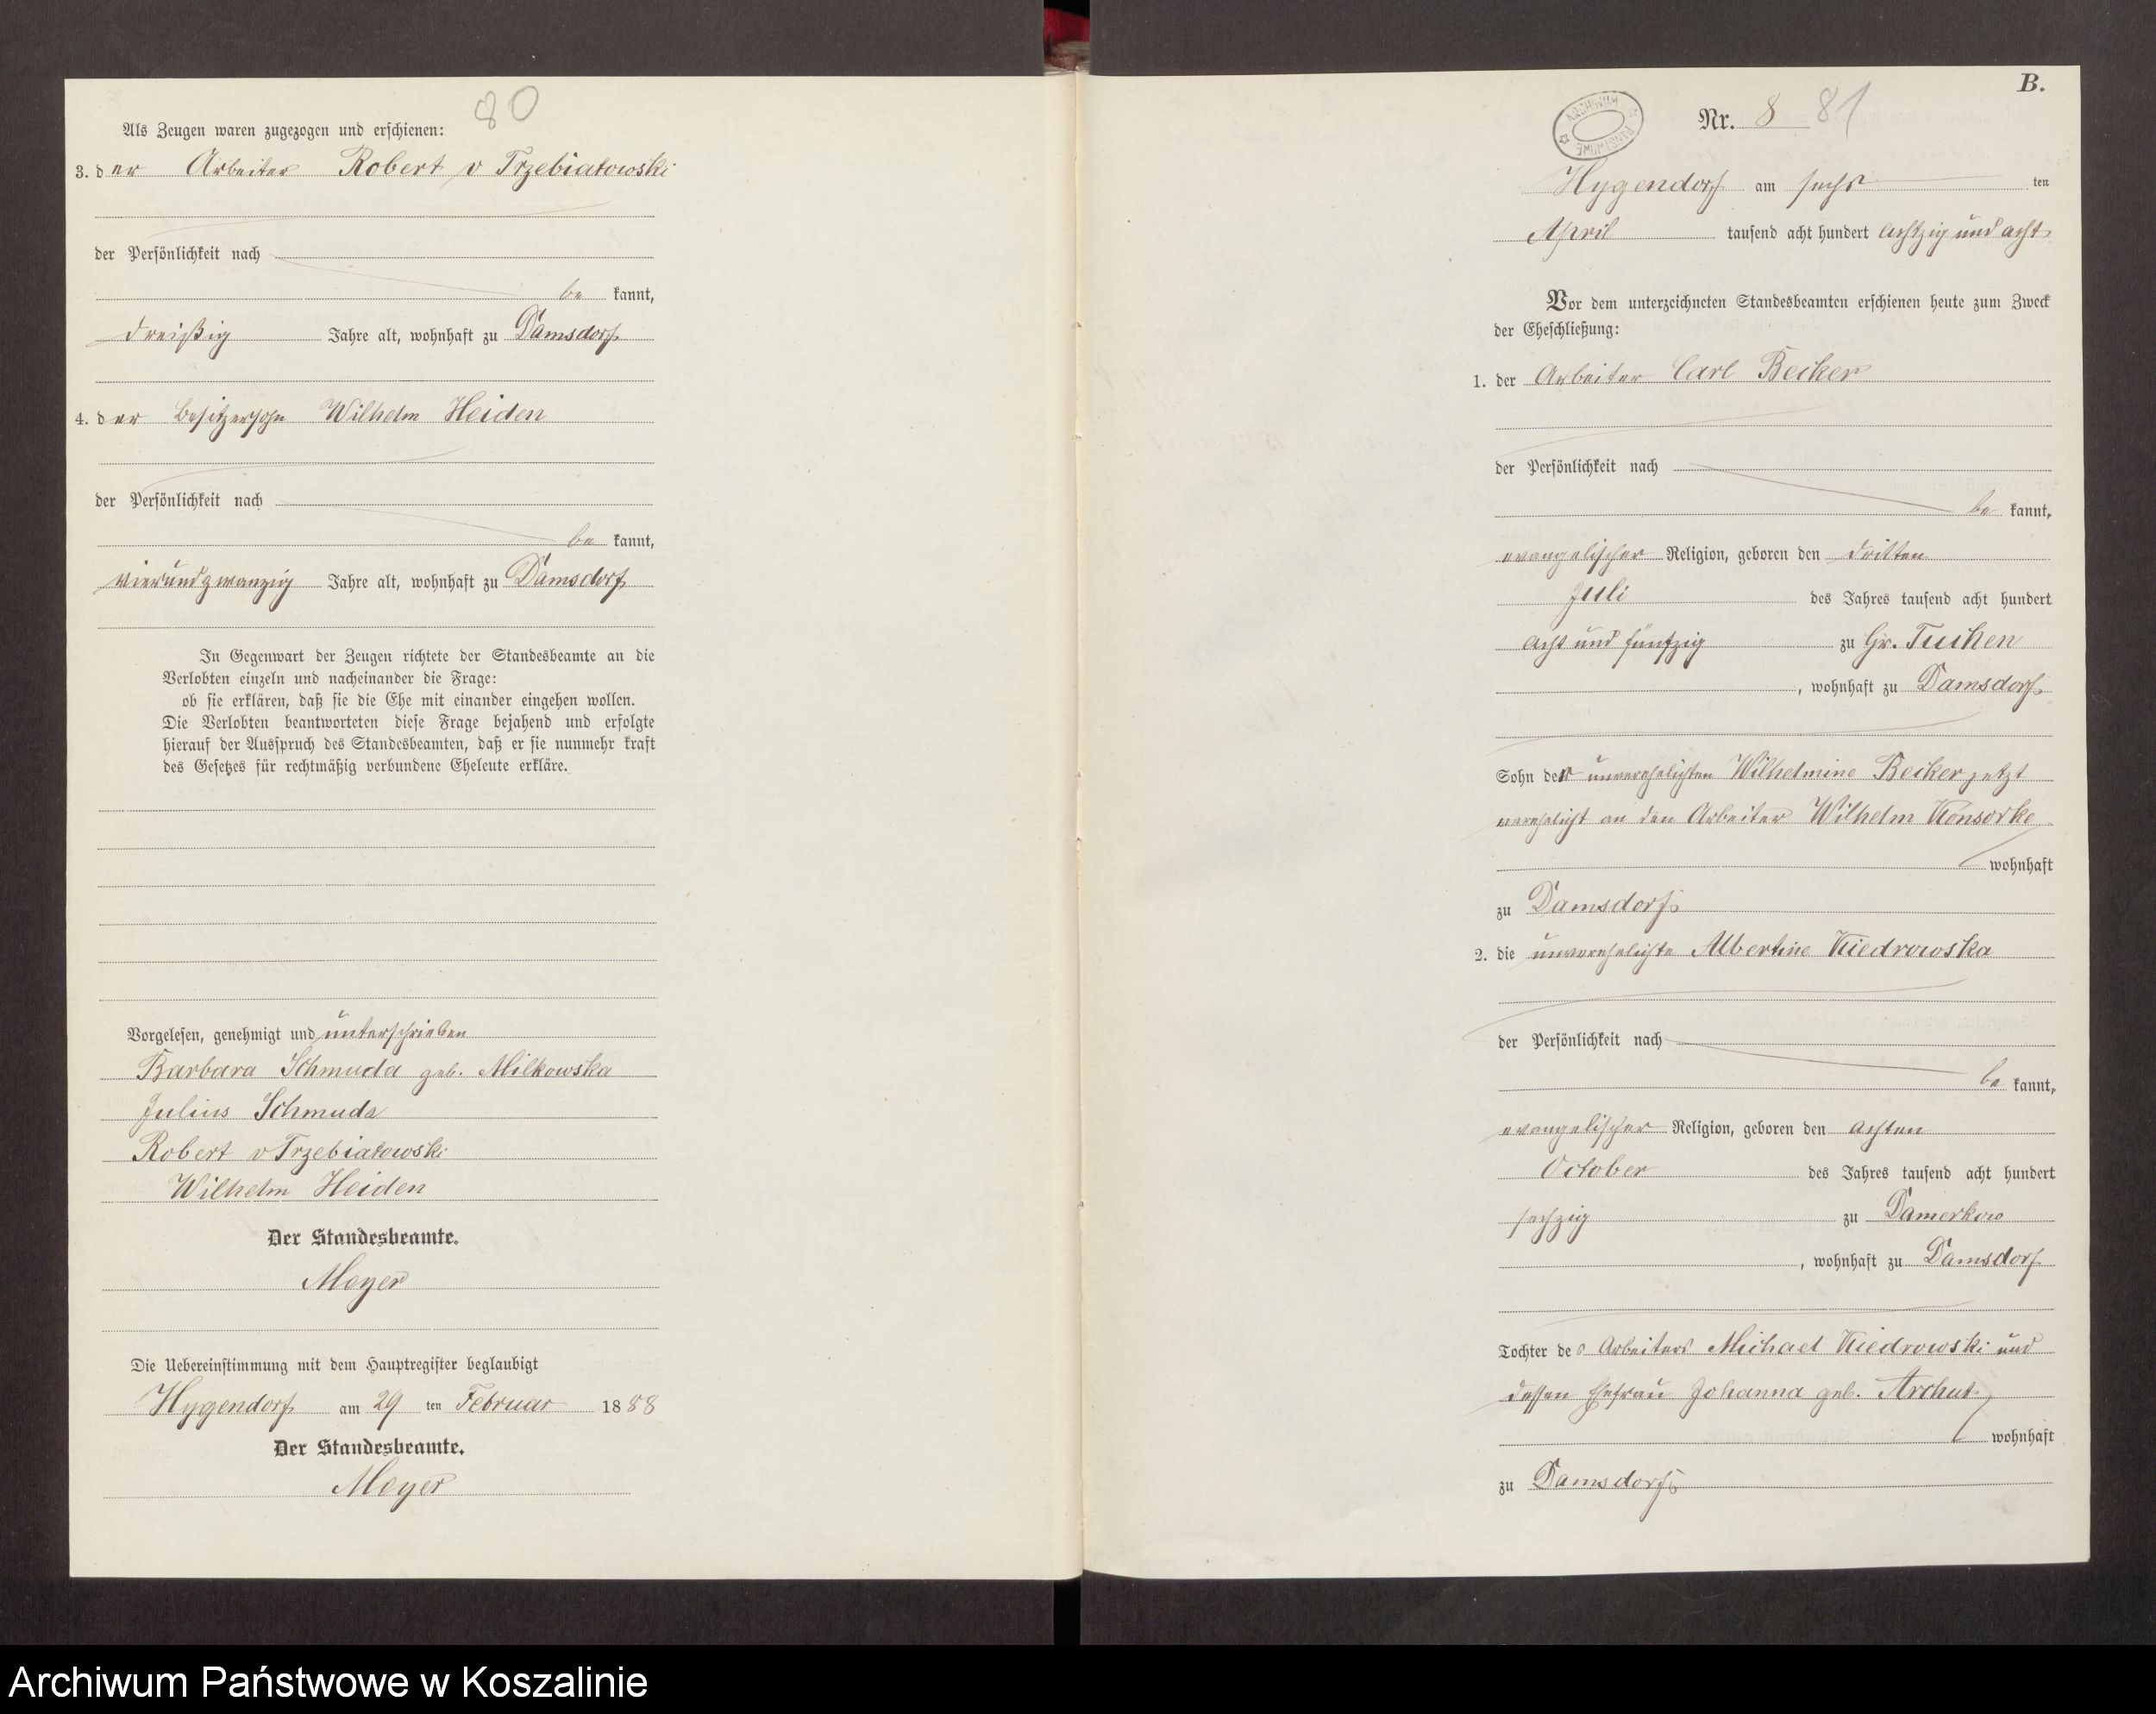 80
Als Zeugen waren zugezogen und erschienen:
3. der Arbeiter Robert v Trzebiatowski
der Persönlichkeit nach
be kannt,
dreißig Jahre alt, wohnhaft zu Damsdorf
4. der Besitzersohn Wilhelm Heiden
der Persönlichkeit nach
be kannt,
vierundzwanzig Jahre alt, wohnhaft zu Damsdorf
In Gegenwart der Zeugen richtete der Standesbeamte an die
Verlobten einzeln und nacheinander die Frage:
ob sie erklären, daß sie die Ehe mit einander eingehen wollen.
Die Verlobten beantworteten diese Frage bejahend und erfolgte
hierauf der Ausspruch des Standesbeamten, daß er sie nunmehr kraft
des Gesetzes für rechtmäßig verbundene Eheleute erkläre.
Vorgelesen, genehmigt und unterschrieben
Barbara Schmuda geb. Milkowska
Julius Schmuda
Robert v Trzebiatowski
Wilhelm Heiden
Der Standesbeamte.
Meyer
Die Uebereinstimmung mit dem Hauptregister beglaubigt
Hygendorf am 29 ten Februar 1888
Der Standesbeamte.
Meyer
B.
Nr. 8 81
Hygendorf am sechs ten
April tausend acht hundert achtzig und acht
Vor dem unterzeichneten Standesbeamten erschienen heute zum Zweck
der Eheschließung:
1. der Arbeiter Carl Becker
der Persönlichkeit nach
be kannt,
evangelischer Religion, geboren den dritten
Juli des Jahres tausend acht hundert
acht und fünfzig zu Gr. Tuchen
, wohnhaft zu Damsdorf
Sohn der unverehelichten Wilhelmine Becker jetzt
verehelicht an den Arbeiter Wilhelm Konsorke
wohnhaft
zu Damsdorf
2. die unverehelichte Albertine Kiedrowska
der Persönlichkeit nach
be kannt,
evangelischer Religion, geboren den achten
October des Jahres tausend acht hundert
sechzig zu Damerkow
, wohnhaft zu Damsdorf
Tochter des Arbeiters Michael Kiedrowski und
dessen Ehefrau Johanna geb. Archut
wohnhaft
zu Damsdorf
Archiwum Państwowe w Koszalinie